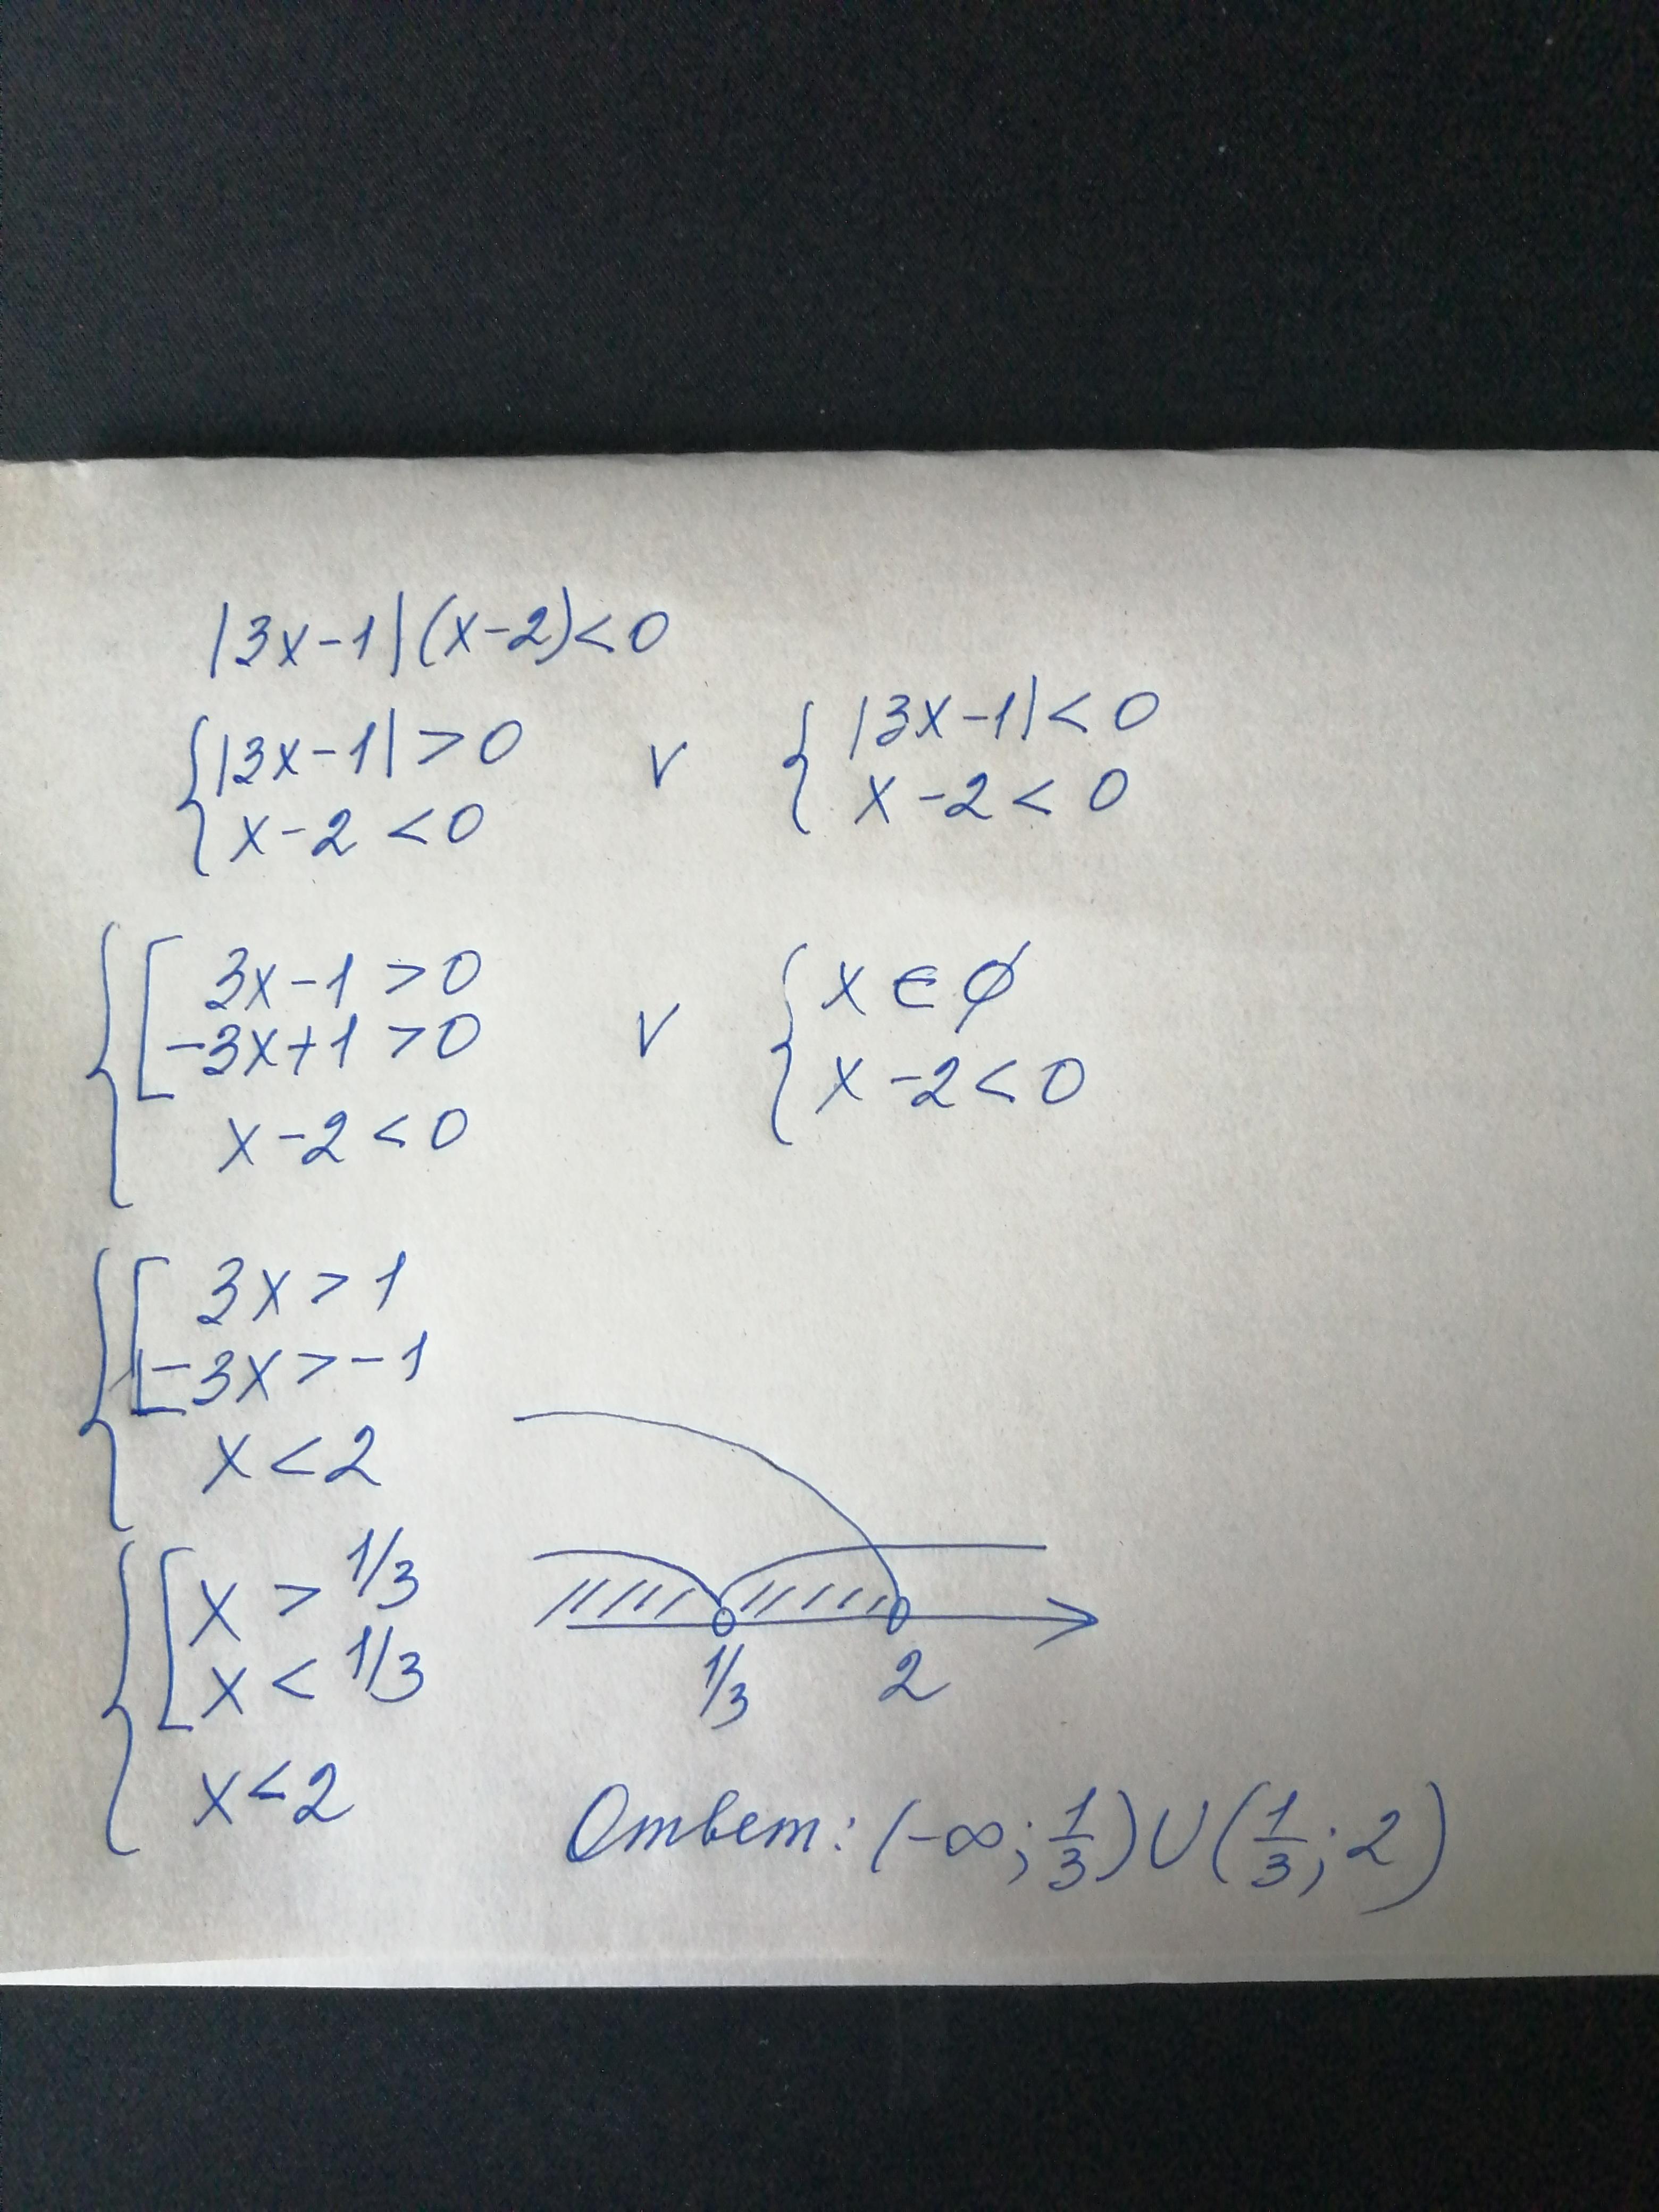 |3x-1|(x-2)<0
{|3x-1|>0 v {|3x-1|<0
x-2<0 x-2<0
{[3x-1>0 v {x∈∅
-3x+1>0
x-2<0 x-2<0
{[3x>1
-3x>-1
x<2
{[x>1/3
x<1/3
x<2
1/3 2
Ответ: (-∞; 1/3)∪(1/3; 2)